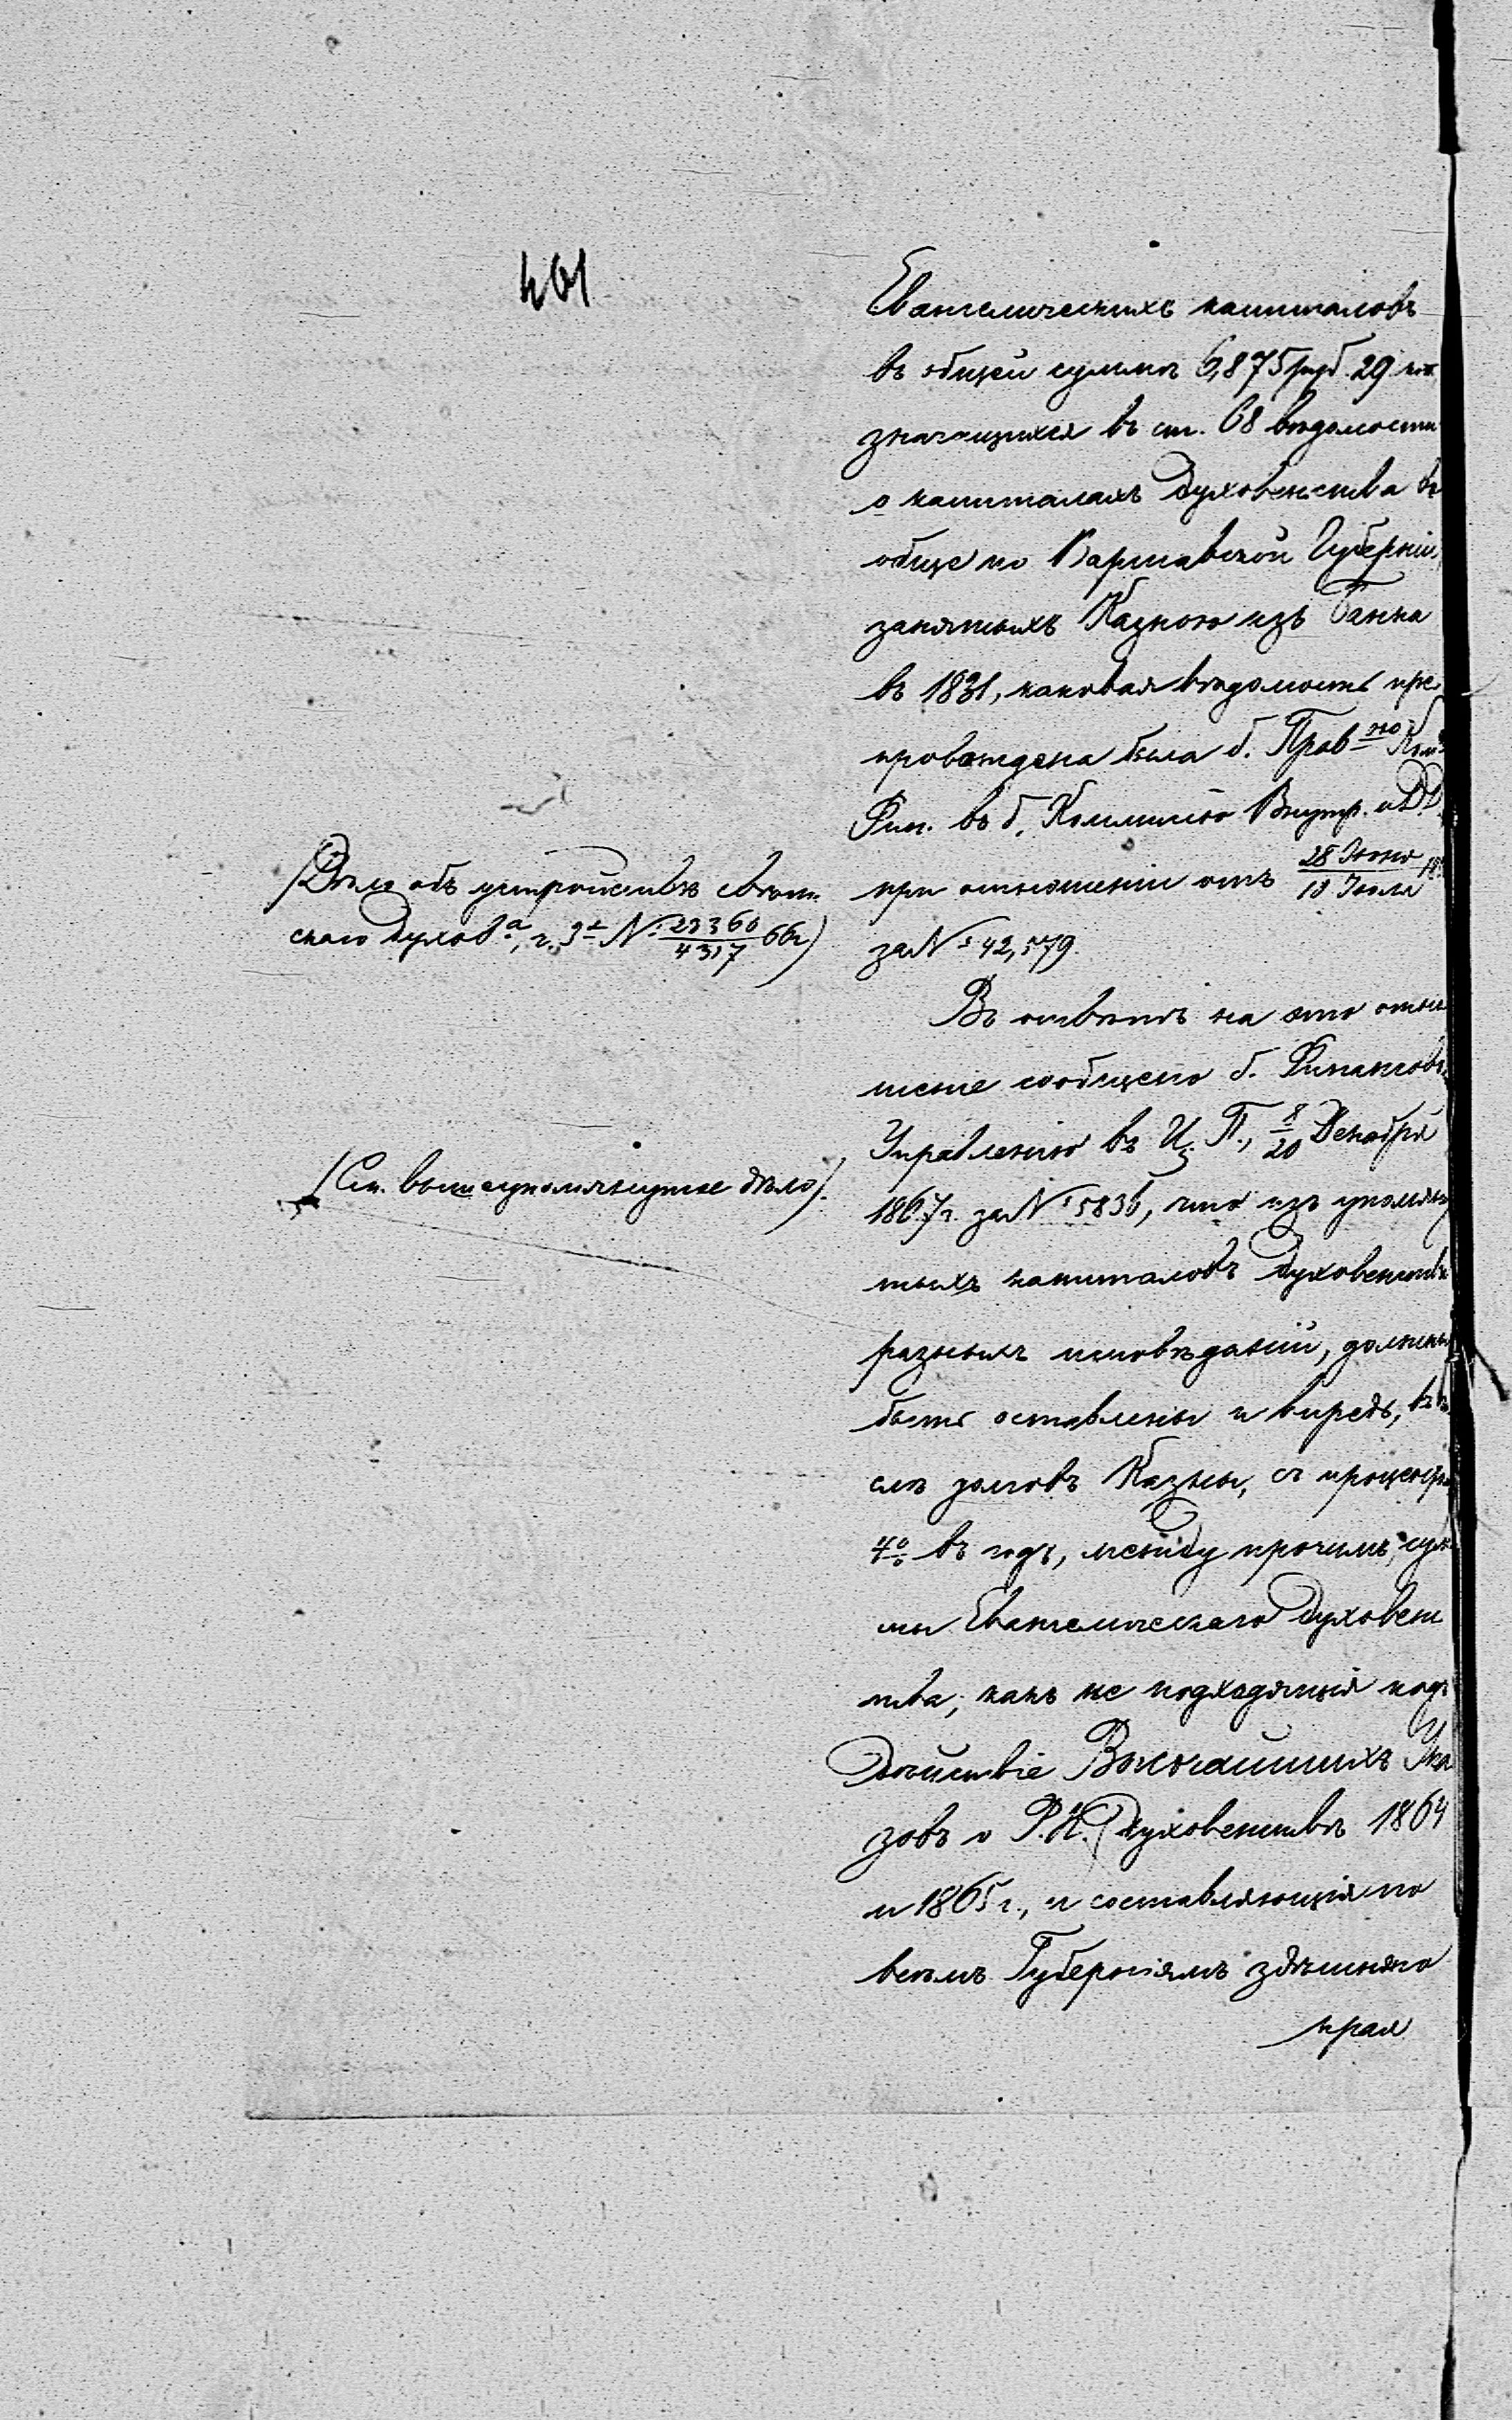 401
Евангелическихъ капиталовъ
въ общей суммѣ 6,875 руб. 29 коп.
значащихся въ ст. 68 вѣдомости
о капиталахъ Духовенства во
обще по Варшавской Губерніи,
занятыхъ Казною изъ Банка
въ 1831, каковая вѣдомость пре
провождена была б. Прав=ною Ком=
Фин. въ б. Коммисію Внутр. и Д.Д.
при отношеніи отъ 28 Іюня/10 Іюля
за № 42,579.
(Дѣло объ устройствѣ свѣт
скаго духов=а, ч. 3=я № 23360/4317 66г)
Въ отвѣтъ на это отно
шеніе сообщено б. Финансов.
Управленію въ Ц. П., 8/20 Декабря
1867 г. за № 5836, что изъ упомяну
тыхъ капиталовъ Духовенства
(См. вышеупомянутое дѣло).
разныхъ исповѣданій, должны
быть оставлены и впредь, въ чи
слѣ долговъ Казны, съ процентами
4% въ годъ, между прочимъ, сум
мы Евангелическаго Духовен
ства, какъ не подходящія подъ
Дѣйствіе Высочайшихъ Ука
зовъ о Р.К. Духовенствѣ 1864
и 1865 г., и составляющія по
всѣмъ Губерніямъ здѣшняго
края